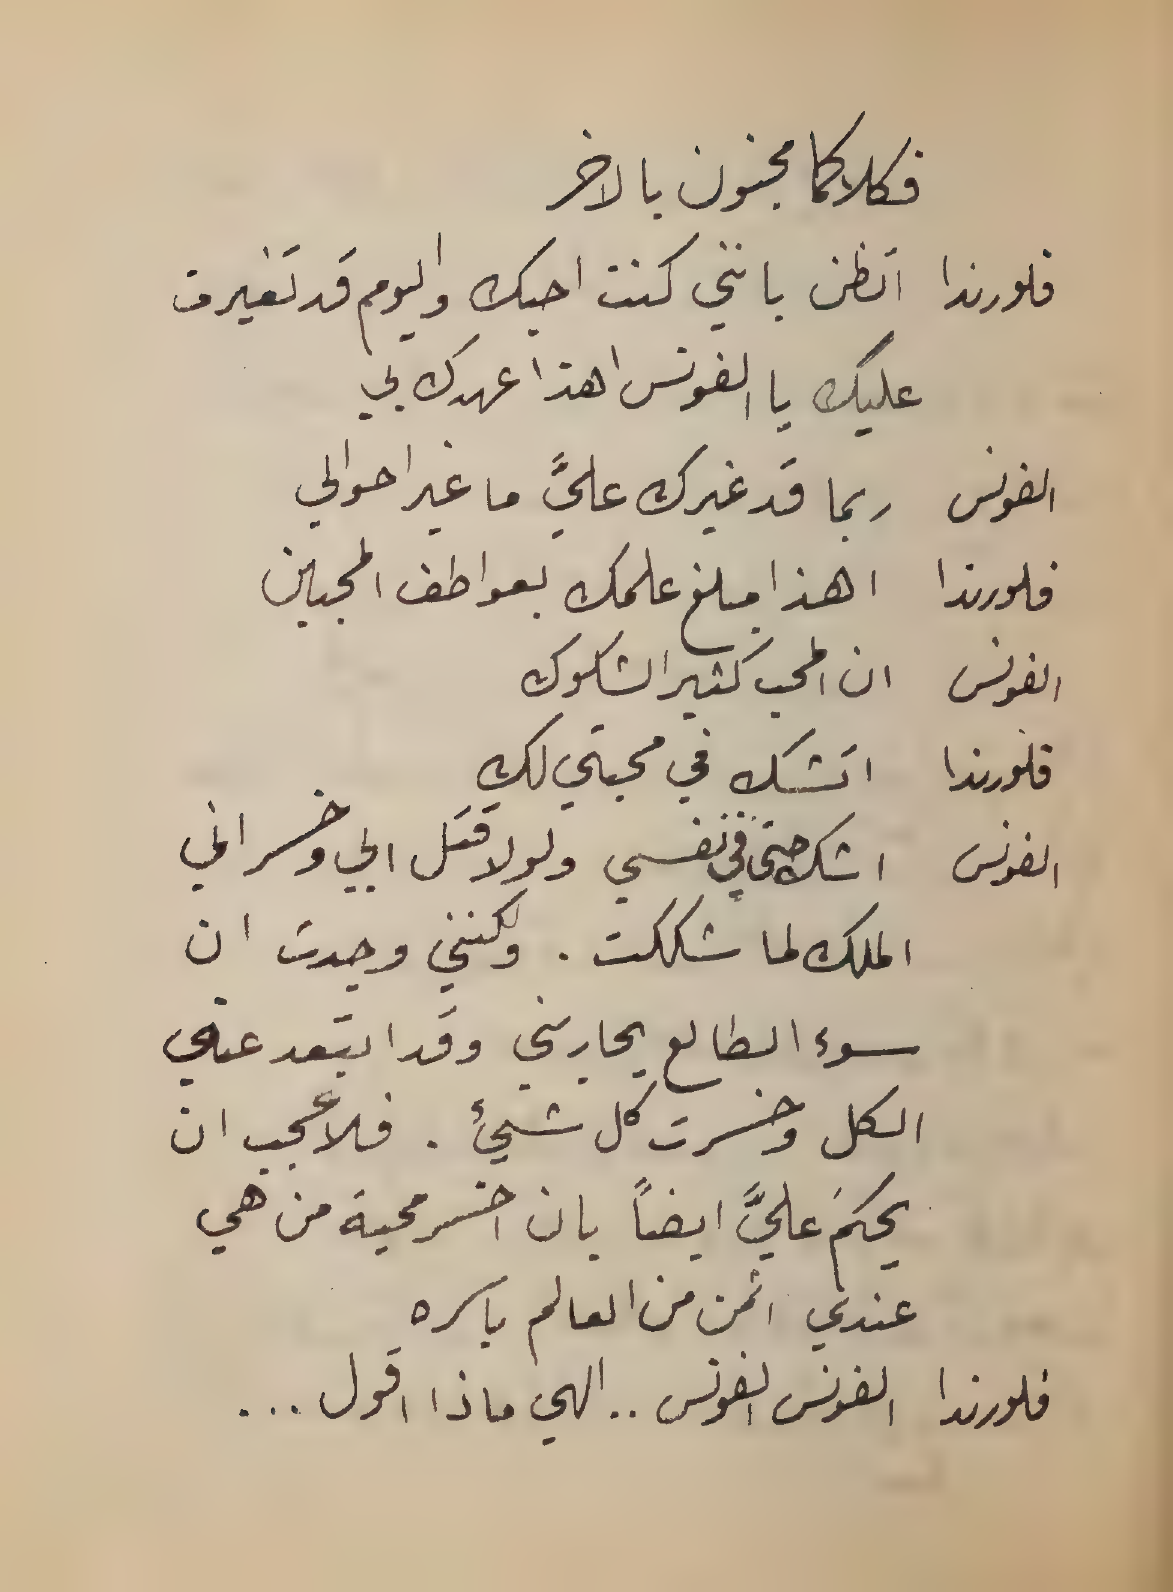 فكلاكما مجنون بالاخر
فلورندا اتظن بانني كنت احبك واليوم قد تغيرت
عليك يا الفونس اهذا عهدك بي
الفونس ربما قد غيرك عليَّ ما غير احوالي
فلورندا اهذا مبلغ علمك بعواطف المحبين
الفونس ان المحب كثير الشكوك
فلورندا اتشك في محبتي لك
الفونس اشك حتى في نفسي ولولا قتل ابي وخسراني
الملك لما شككت . ولكنني وجدت ان
سوء الطالع يحاربني وقد ابتعد عني
الكل وخسرت كل شيئ . فلا عجب ان
يحكمَ عليَّ ايضاً بان اخسر محبة من هي
عندي اثمن من العالم باسره
فلورندا الفونس الفونس .. الهي ماذا اقول ...